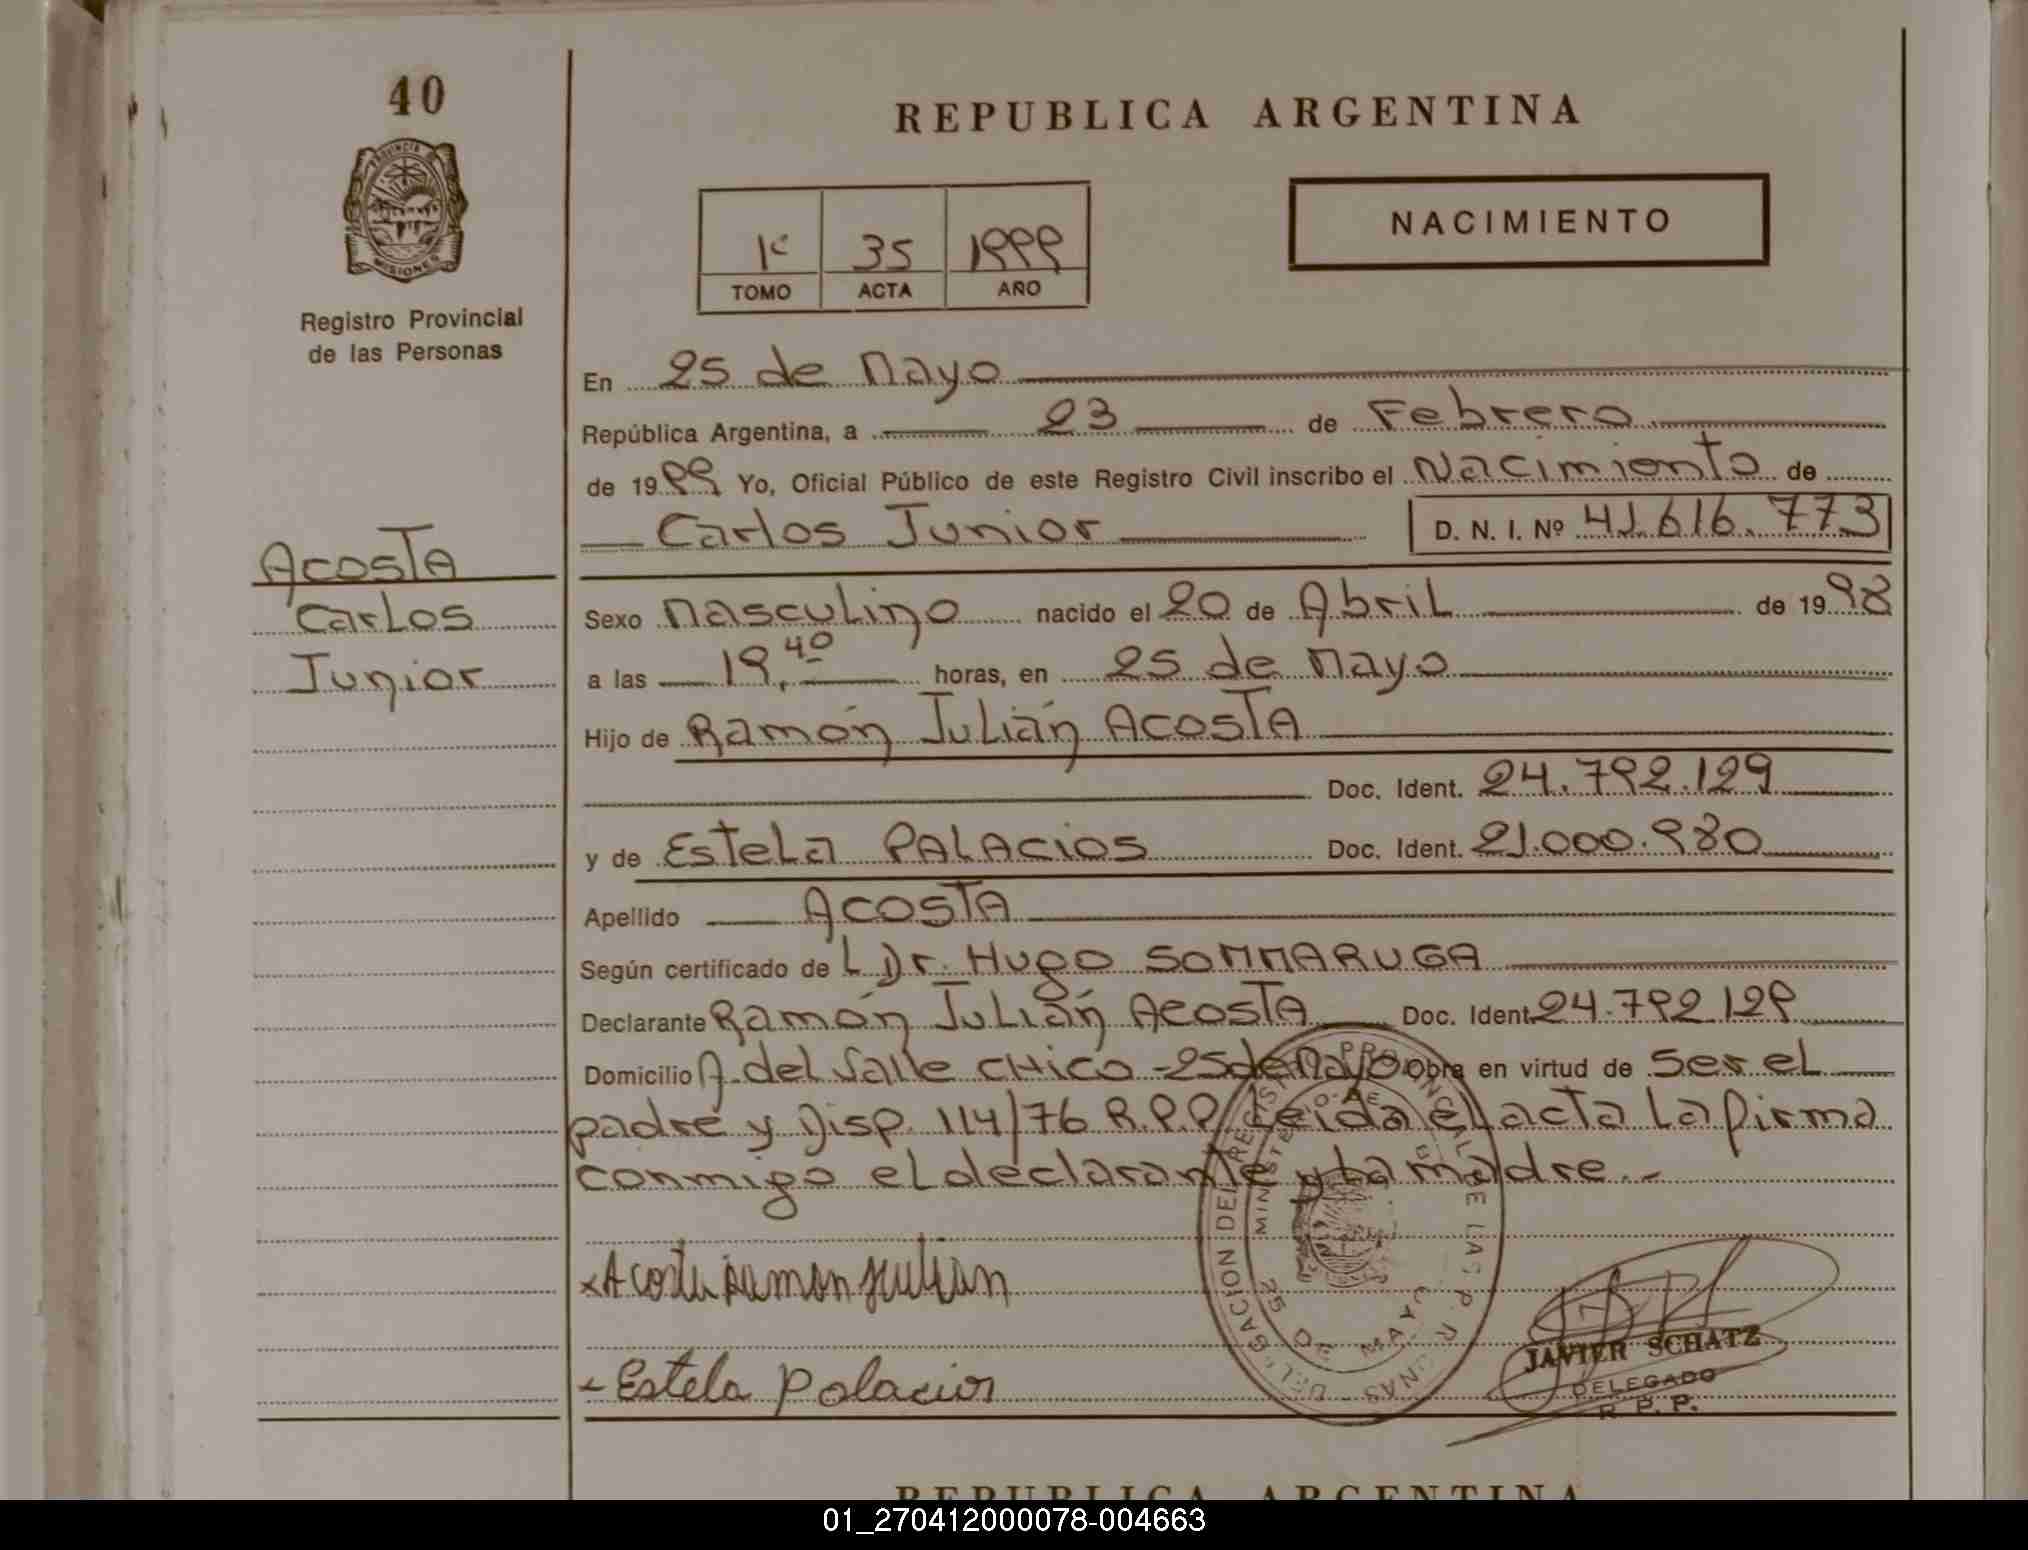 40
PROVINCIA DE
MISIONES
Registro Provincial
de las Personas
Acosta
Carlos
Junior
REPUBLICA ARGENTINA
1º 35 1999
TOMO ACTA AÑO
NACIMIENTO
En 25 de Mayo
República Argentina, a 23 de Febrero
de 1999 Yo, Oficial Público de este Registro Civil inscribo el Nacimiento de
Carlos Junior D. N. I. Nº 41.616.773
Sexo Masculino nacido el 20 de Abril de 1998
a las 19,40 horas, en 25 de Mayo
Hijo de Ramón Julián Acosta
Doc. Ident. 24.792.129
y de Estela PALACIOS Doc. Ident. 21.000.980
Apellido ACOSTA
Según certificado de L Dr. Hugo SOMMARUGA
Declarante Ramón Julián Acosta Doc. Ident. 24.792.129
Domicilio A. del Valle CHico - 25 de Mayo Obra en virtud de ser el
padre y Disp. 114/76 R.P.P. Leida el acta la firma
conmigo el declarante y la madre.-
x Acosta Ramon Julian
- Estela Palacios
DELEGACION DEL REGISTRO PROVINCIAL DE LAS PERSONAS
MINISTERIO DE
25 DE MAYO
JAVIER SCHATZ
DELEGADO
R. P. P.
REPUBLICA ARGENTINA
01_270412000078-004663